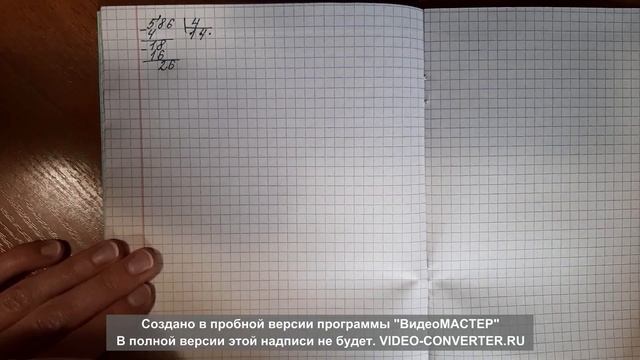 586 4
- 4 14.
- 18
16
26
Создано в пробной версии программы "ВидеоМАСТЕР"
В полной версии этой надписи не будет. VIDEO-CONVERTER.RU